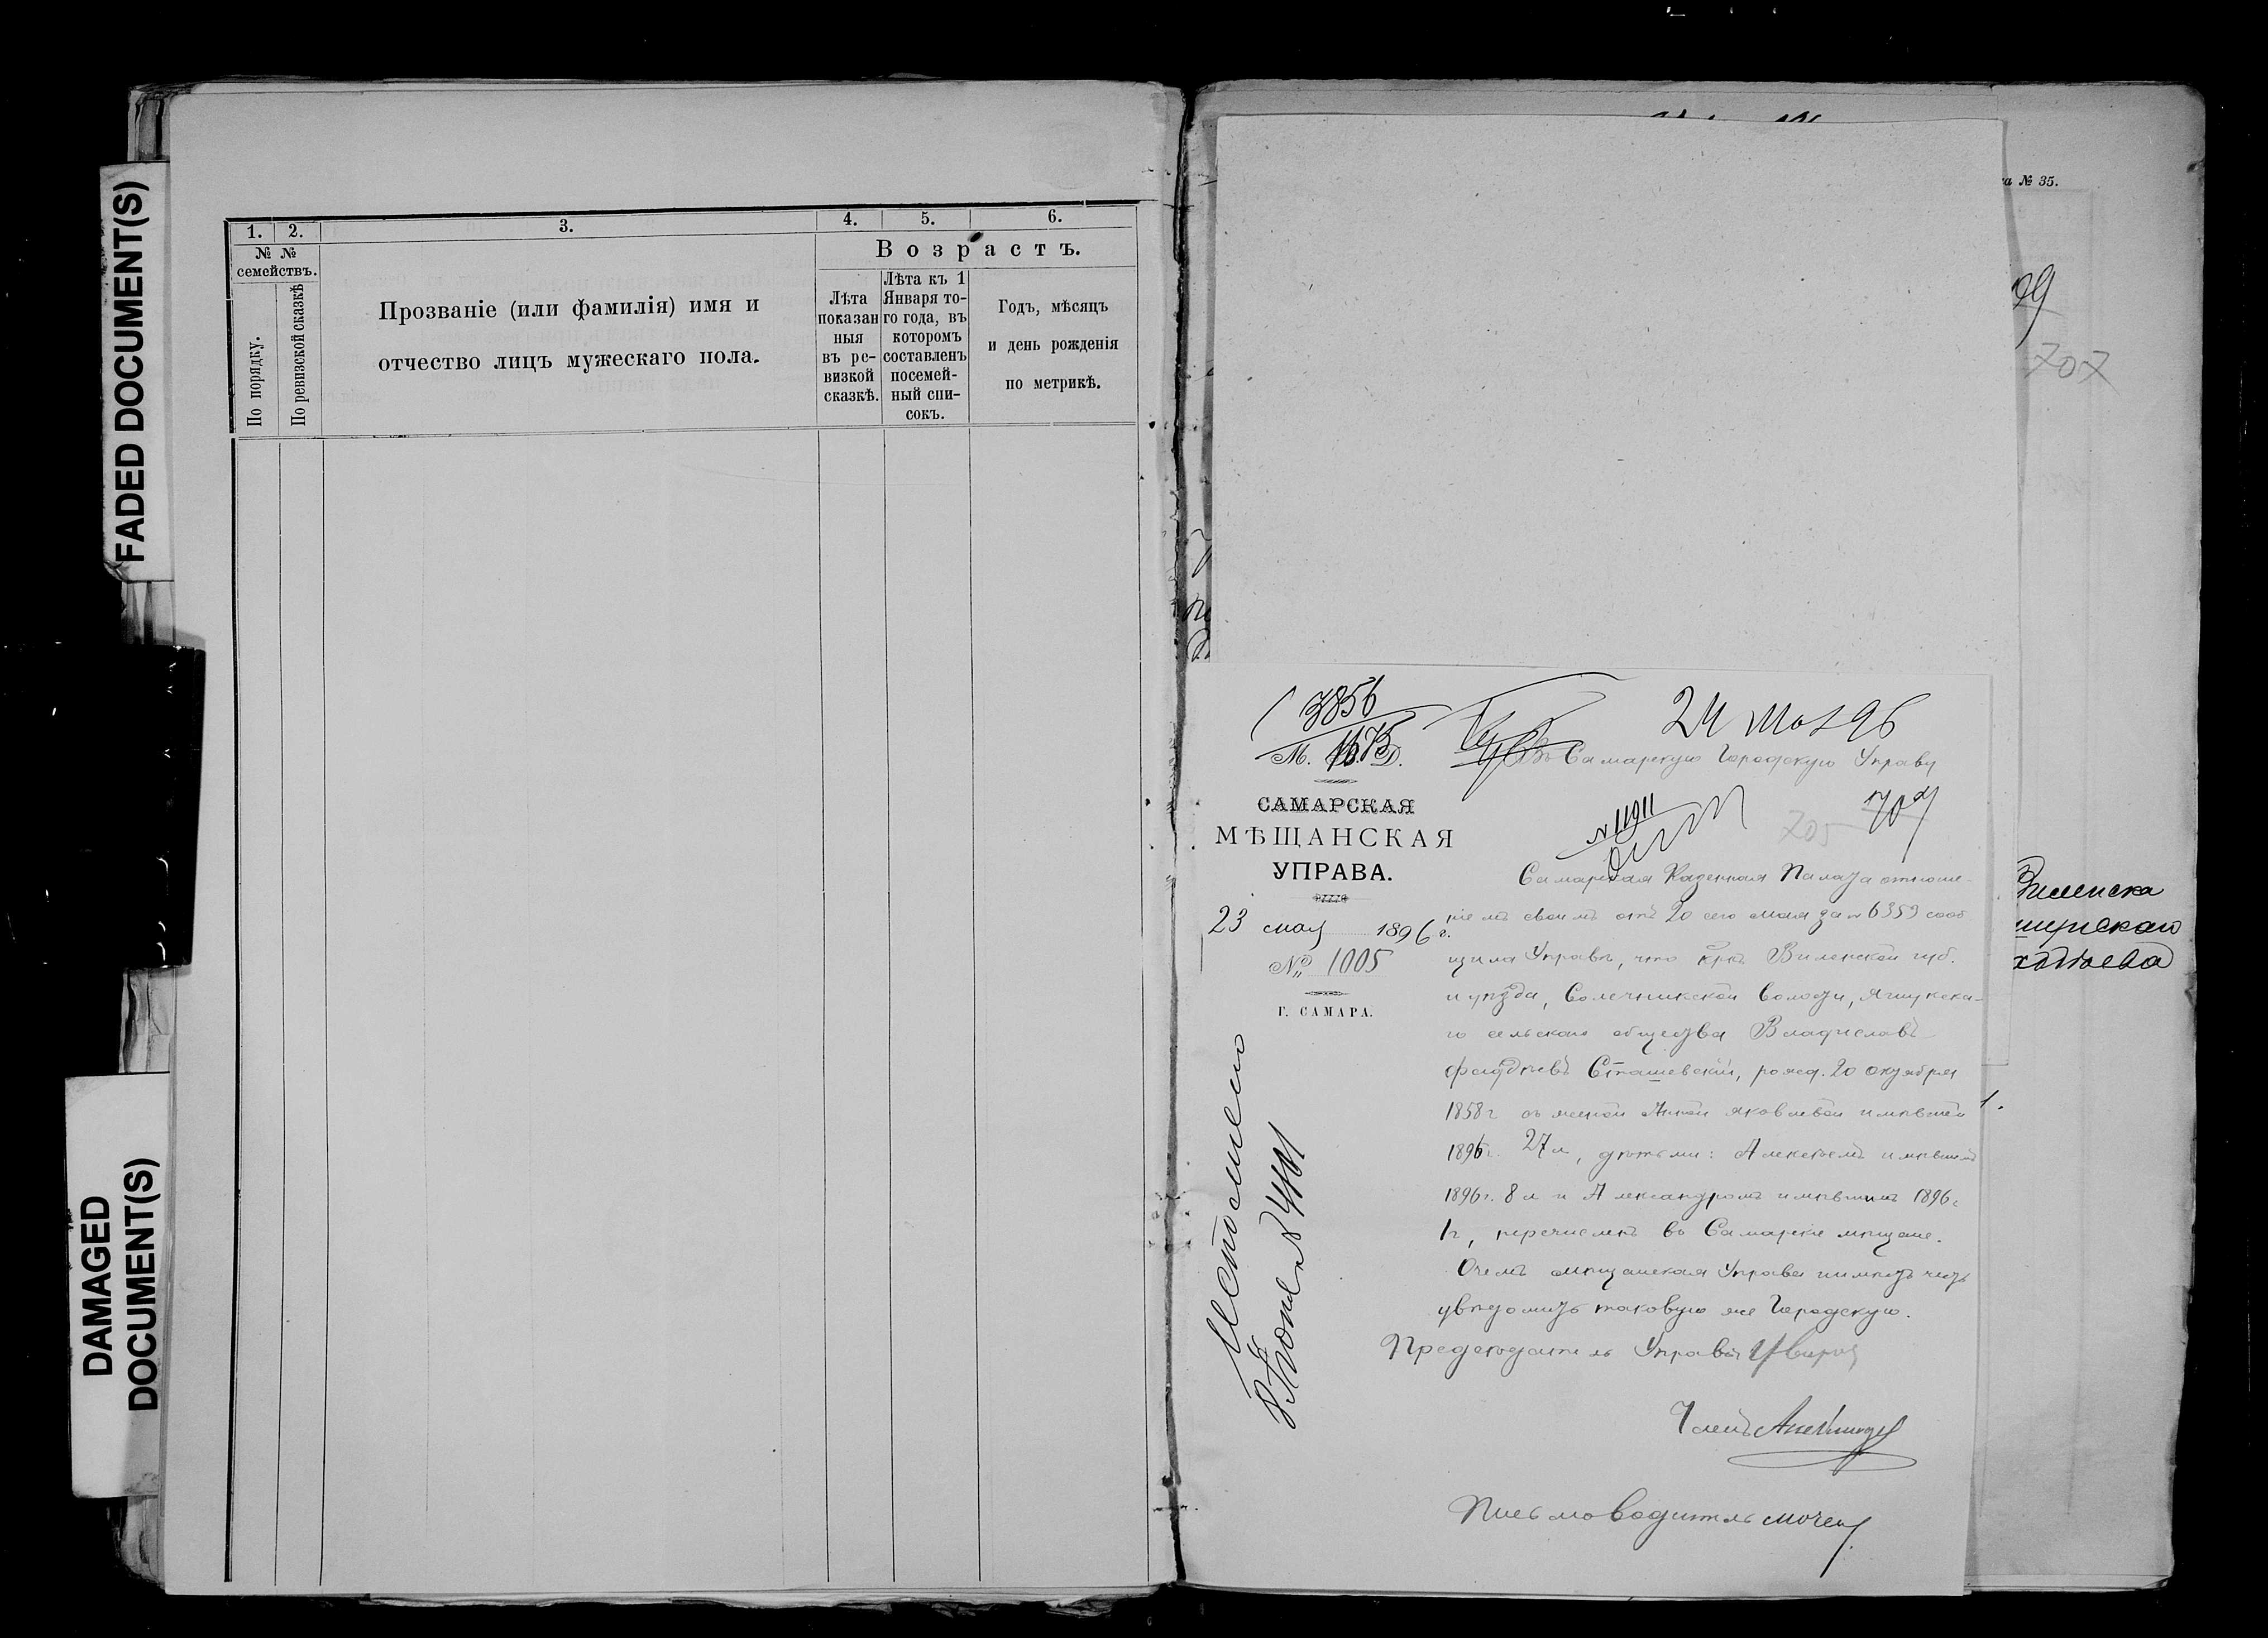 FADED DOCUMENT(S)
DAMAGED
DOCUMENT(S)
1. 2. 3. 4. 5. 6.
№ №
семействъ.
По порядку.
По ревизской сказкѣ
Прозваніе (или фамилія) имя и
отчество лицъ мужескаго пола.
Возрастъ.
Лѣта
показан
ныя
въ ре-
визкой
сказкѣ.
Лѣта къ 1
Января то-
го года, въ
которомъ
составленъ
посемей-
ный спи-
сокъ.
Годъ, мѣсяцъ
и день рожденія
по метрикѣ.
№ 35.
707
3856
М. В. Д.
24 мая 96
Въ Самарскую Городскую Управу
САМАРСКАЯ
МѢЩАНСКАЯ
УПРАВА.
23 мая 1896 г.
№ 1005
Г. САМАРА.
№ 11911
705
Самарская Казенная Палата отноше-
ніемъ своимъ отъ 20 сего мая за № 6359 сооб
щила Управѣ, что крт. Виленской губ.
и уѣзда, Солечникской волости, Яшунска-
го сельскаго общества Владиславъ
Фаддѣевъ Сташевскій, рожд. 20 октября
1858 г съ женой Анной Яковлевой имѣвшей
1896 г. 27 л, дѣтьми: Алексѣемъ имѣвшимъ
1896 г. 8 л и Александромъ имѣвшимъ 1896 г
1 г, перечисленъ въ Самарскіе мѣщане.
О чемъ мѣщанская Управа имѣетъ честь
увѣдомить таковую же Городскую.
Предсѣдатель Управы
Членъ
Письмоводитель
Исполнено
8 Іюня №
Виленска
хѣддѣева
1.